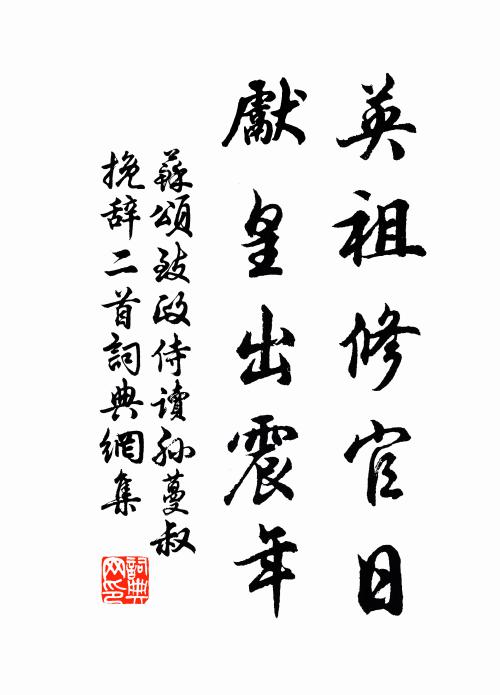 英祖修官日
獻皇出震年
蘇頌致政侍讀孙蔓叔
挽辞二首詞典網集
詞典
网印